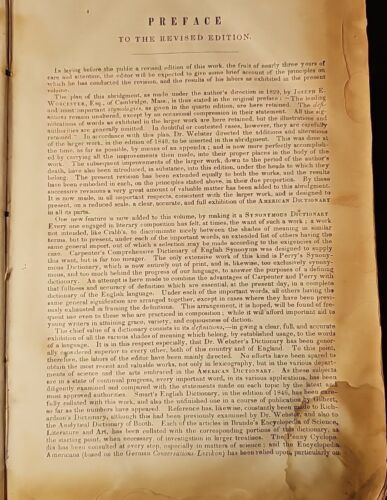 PREFACE
TO THE REVISED EDITION.
In laying before the public a revised edition of this work, the fruit of nearly three years of
care and attention, the editor will be expected to give some brief account of the principles on
which he has conducted the revision, and the results of his labors as exhibited in the present
volume.
The plan of this abridgment, as made under the author's direction in 1829, by JOSEPH E.
WORCESTER, Esq., of Cambridge, Mass., is thus stated in the original preface: "The leading
and most important etymologies, as given in the quarto edition, are here retained. The defi-
nitions remain unaltered, except by an occasional compression in their statement. All the sig-
nifications of words as exhibited in the larger work, are here retained, but the illustrations and
authorities are generally omitted. In doubtful or contested cases, however, they are carefully
retained." In accordance with this plan, Dr. Webster directed the additions and alterations
of the larger work, in the edition of 1840, to be inserted in this abridgment. This was done at
the time, so far as possible, by means of an appendix; and is now more perfectly accomplish-
ed by carrying all the improvements then made, into their proper places in the body of the
work. The subsequent improvements of the larger work, down to the period of the author's
death, have also been introduced, in substance, into this edition, under the heads to which they
belong. The present revision has been extended equally to both the works, and the results
have been embodied in each, on the principles stated above, in their due proportion. By these
successive revisions a very great amount of valuable matter has been added to this abridgment.
It is now made, in all important respects, consistent with the larger work, and is designed to
present, on a reduced scale, a clear, accurate, and full exhibition of the AMERICAN DICTIONARY
in all its parts.
One new feature is now added to this volume, by making it a SYNONYMOUS DICTIONARY
Every one engaged in literary composition has felt, at times, the want of such a work; a work
not intended, like Crabb's, to discriminate nicely between the shades of meaning in similar
terms, but to present, under each of the important words, an extended list of others having the
same general import, out of which a selection may be made according to the exigencies of the
case. Carpenter's Comprehensive Dictionary of English Synonyms was designed to supply
this want, but is far too meager. The only extensive work of this kind is Perry's Synony-
mous Dictionary, which is now entirely out of print, and is, likewise, too exclusively synony-
mous, and too much behind the progress of our language, to answer the purposes of a defining
dictionary. An attempt is here made to combine the advantages of Carpenter and Perry with
that fullness and accuracy of definition which are essential, at the present day, in a complete
dictionary of the English language. Under each of the important words, all others having the
same general signification are arranged together, except in cases where they have been previ-
ously exhausted in framing the definition. This arrangement, it is hoped, will be found of fre-
quent use even to those who are practiced in composition; while it will afford important aid to
young writers in attaining grace, variety, and copiousness of diction.
The chief value of a dictionary consists in its definitions,—in giving a clear, full, and accurate
exhibition of all the various shades of meaning which belong, by established usage, to the words
of a language. It is in this respect, especially, that Dr. Webster's Dictionary has been gener-
ally considered superior to every other, both of this country and of England. To this point,
therefore, the labors of the editor have been mainly directed. No efforts have been spared to
obtain the most recent and valuable works, not only in lexicography, but in the various depart-
ments of science and the arts embraced in the AMERICAN DICTIONARY. As these subjects
are in a state of continual progress, every important word, in its various applications, has been
diligently examined and compared with the statements made on each topic by the latest and
most approved authorities. Smart's English Dictionary, in the edition of 1846, has been care-
fully collated with this work, and also the unfinished one in a course of publication by
so far as the numbers have appeared. Reference has, likewise, constantly been made to Rich-
ardson's Dictionary, although this had been previously examined by Dr. Webster, and also to
the Analytical Dictionary of Booth. Each of the articles in Brande's Encyclopedia of Science,
Literature and Art, has been collated with the corresponding portions of this dictionary, as
the starting point, when necessary, of investigation in larger treatises. The Penny Cyclope-
dia has been consulted at every step, especially in matters of science; and the Encyclopedia
Americana (based on the German Conversations Lexicon) has been relied upon, particularly on